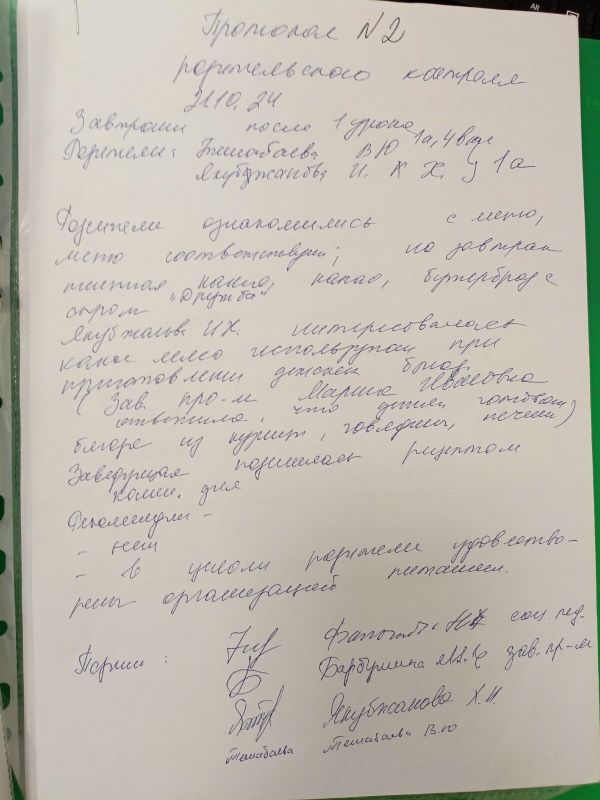 Протокол №2
родительского контроля
21.10.24
Завтраки после 1 урока
Родители: Тешабаева В Ю 1а, 4 в кл
Якубжанова Х. } 1а
Родители ознакомились с меню,
меню соответствует; на завтрак
пшенная каша, какао, бутерброд с
сыром "Дружба"
Якубжанова И.Х. интересовалась
какое мясо используют при
приготовлении детских блюд.
(Зав. про-м Марина Ивановна
ответила, что детям готовят
блюда из курицы, говядины, печени)
Заведующая поделилась рецептом
Рекомендации -
- нет
- в целом родители удовлетво-
рены организацией питания.
Подписи:
соц. пед.
Барбушина М.И. зав. пр-м
Якубжанова Х.И.
Тешабаева Тешабаева В.Ю